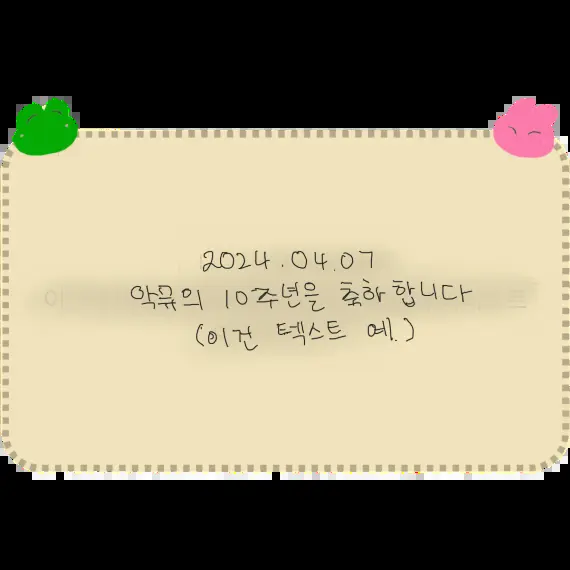 2024.04.07
악뮤의 10주년을 축하합니다
(이건 텍스트 예.)